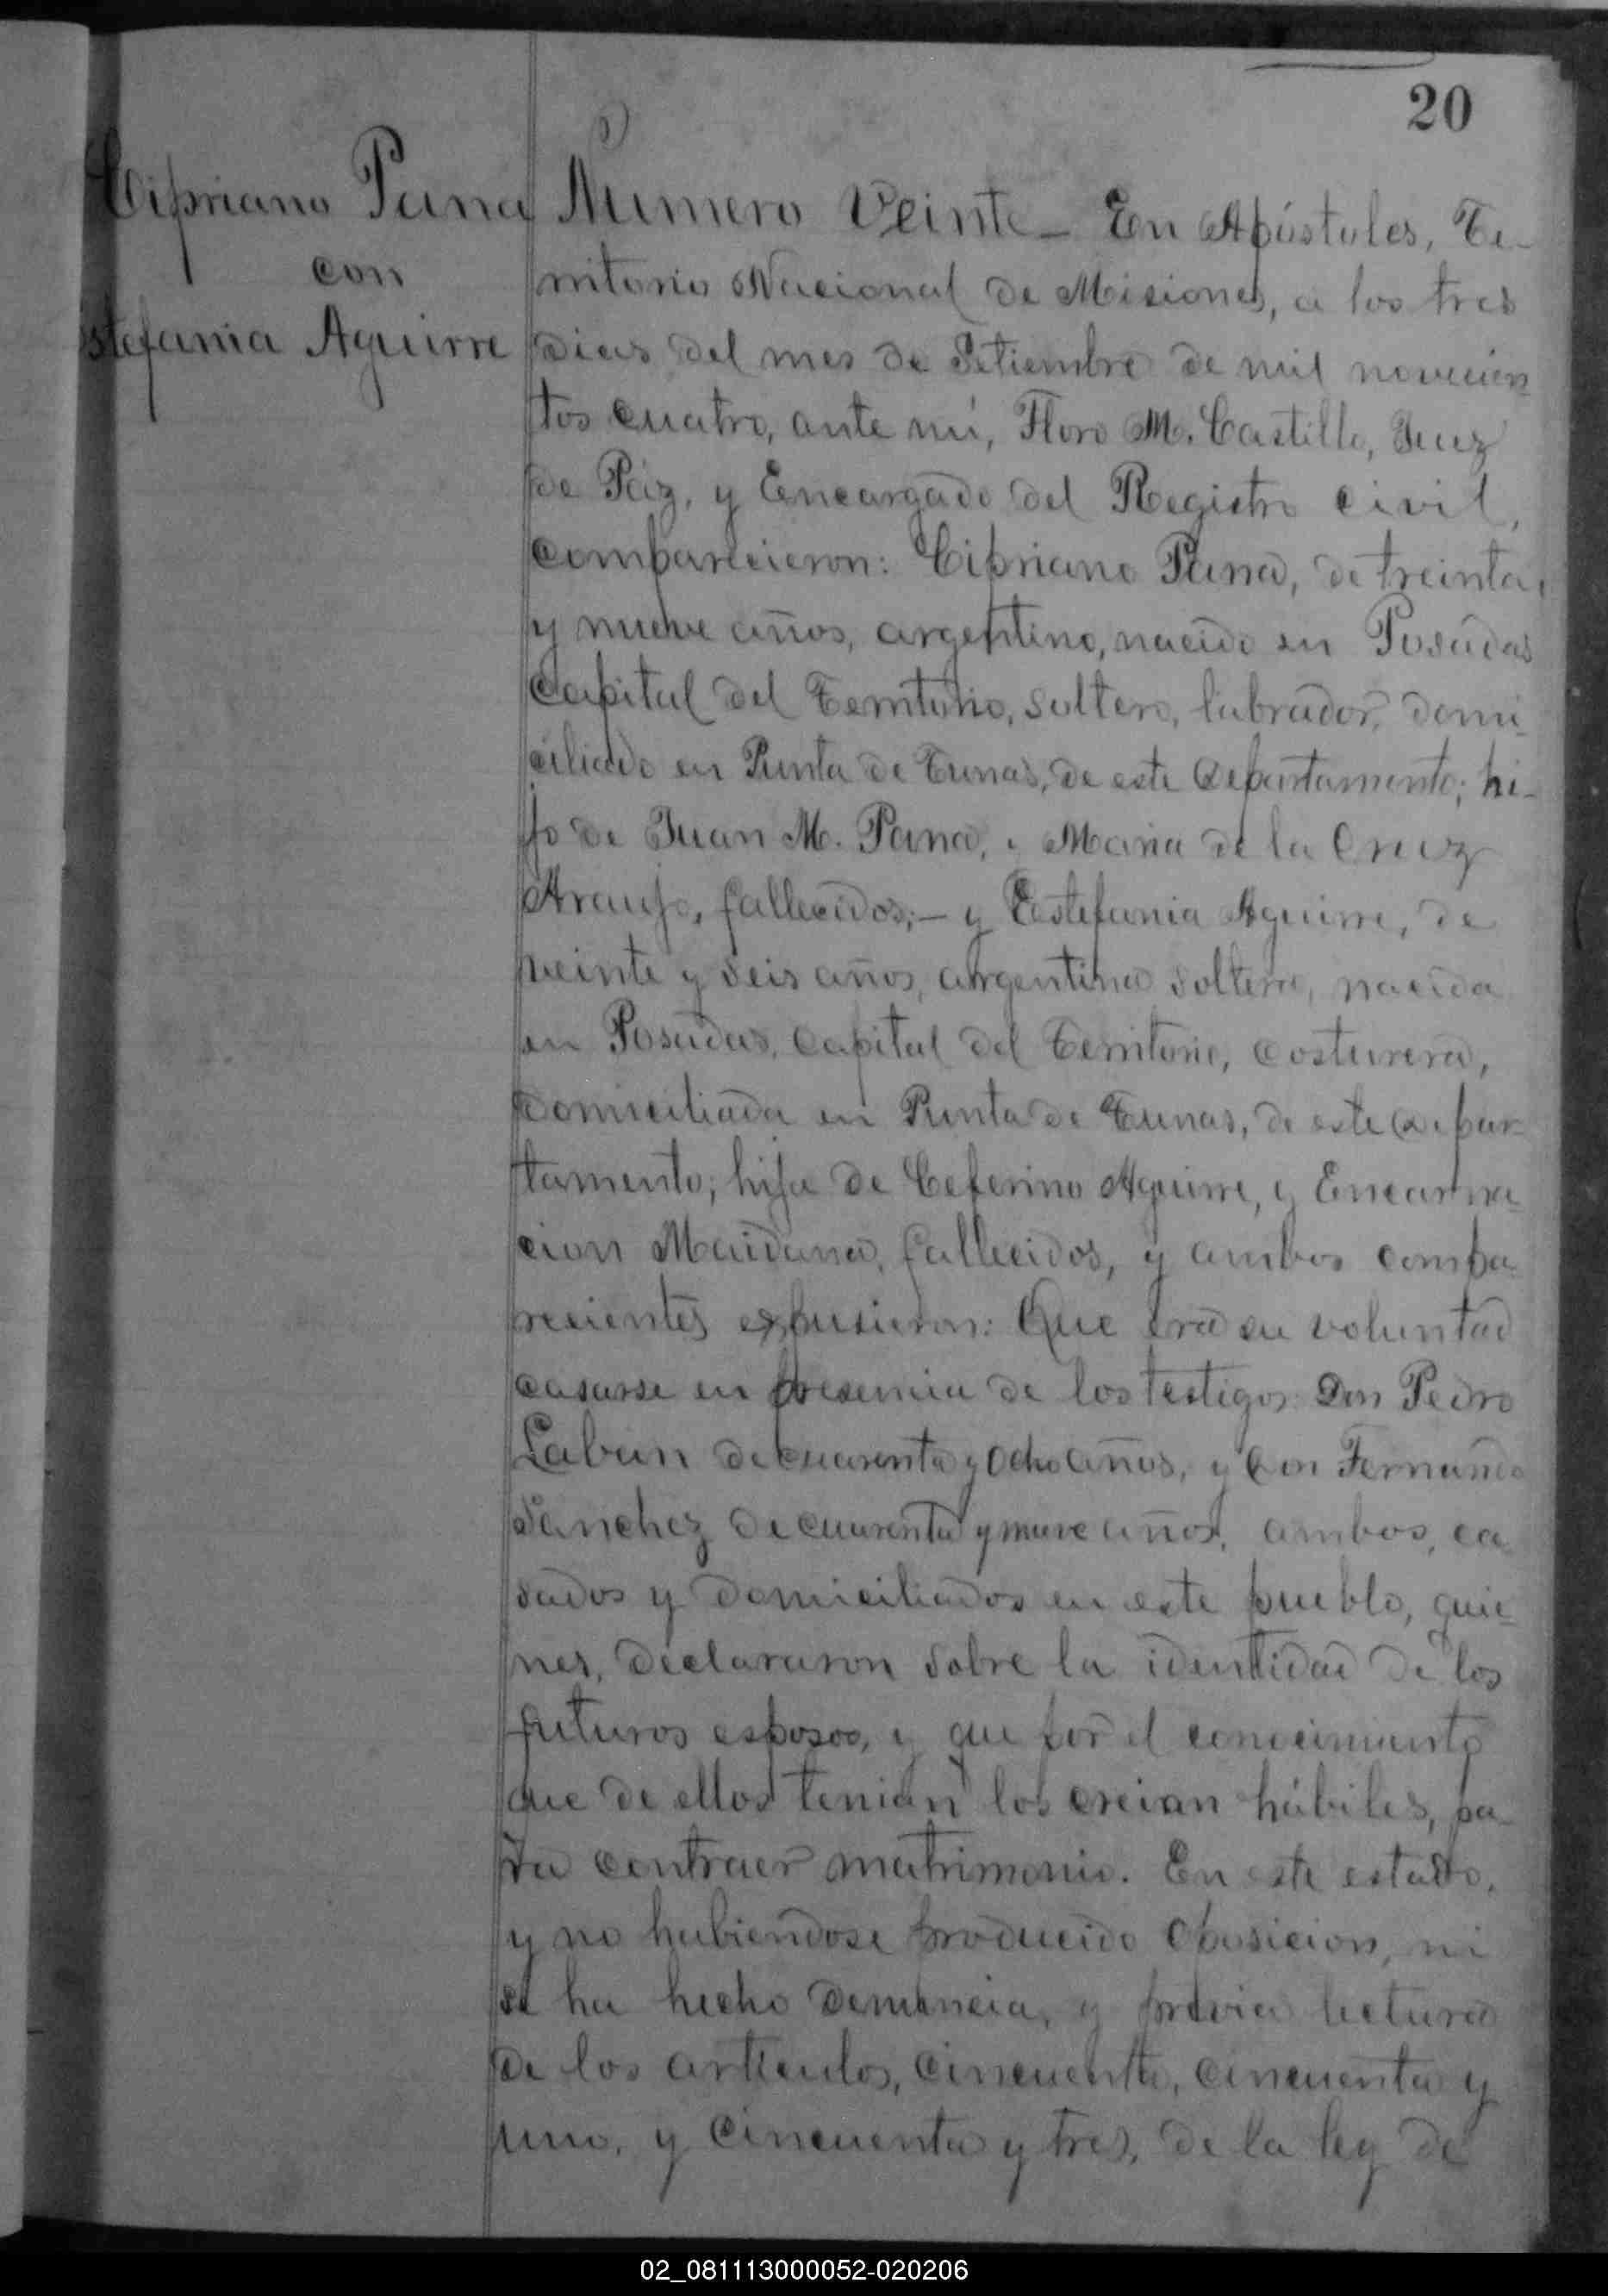 20
Cipriano Pana
con
Estefania Aguirre
Numero Veinte_ En Apóstoles, Te-
rritorio Nacional de Misiones, a los tres
dias del mes de Setiembre de mil novecien-
tos cuatro, ante mí, Floro M. Castillo, Juez
de Páz, y Encargado del Registro Civil,
comparecieron: Cipriano Pana, de treinta,
y nueve años, argentino, nacido en Posadas
Capital del Territorio, soltero, labrador, domi-
ciliado en Punta de Tunas, de este Departamento; hi-
jo de Juan M. Pana, y Maria de la Cruz
Araujo, fallecidos;- y Estefania Aguirre, de
veinte y seis años, argentina soltera, nacida
en Posadas, Capital del Territorio, costurera,
domiciliada en Punta de Tunas, de este Depar-
tamento; hija de Ceferino Aguirre, y Encarna-
cion Maidana, fallecidos, y ambos compa-
recientes expusieron: Que era su voluntad
casarse en presencia de los testigos Don Pedro
Labun de cuarenta y ocho años, y Don Fernando
Sanchez de cuarenta y nueve años, ambos, ca-
sados y domiciliados en este pueblo, quie-
nes, declararon sobre la identidad de los
futuros esposos, y que por el conocimiento
que de ellos tenian los creian hábiles, pa-
ra contraer matrimonio. En este estado,
y no habiendose producido oposicion, ni
se ha hecho denuncia, y previa lectura
de los artículos, cincuenta, cincuenta y
uno, y cincuenta y tres, de la ley de
02_081113000052-020206